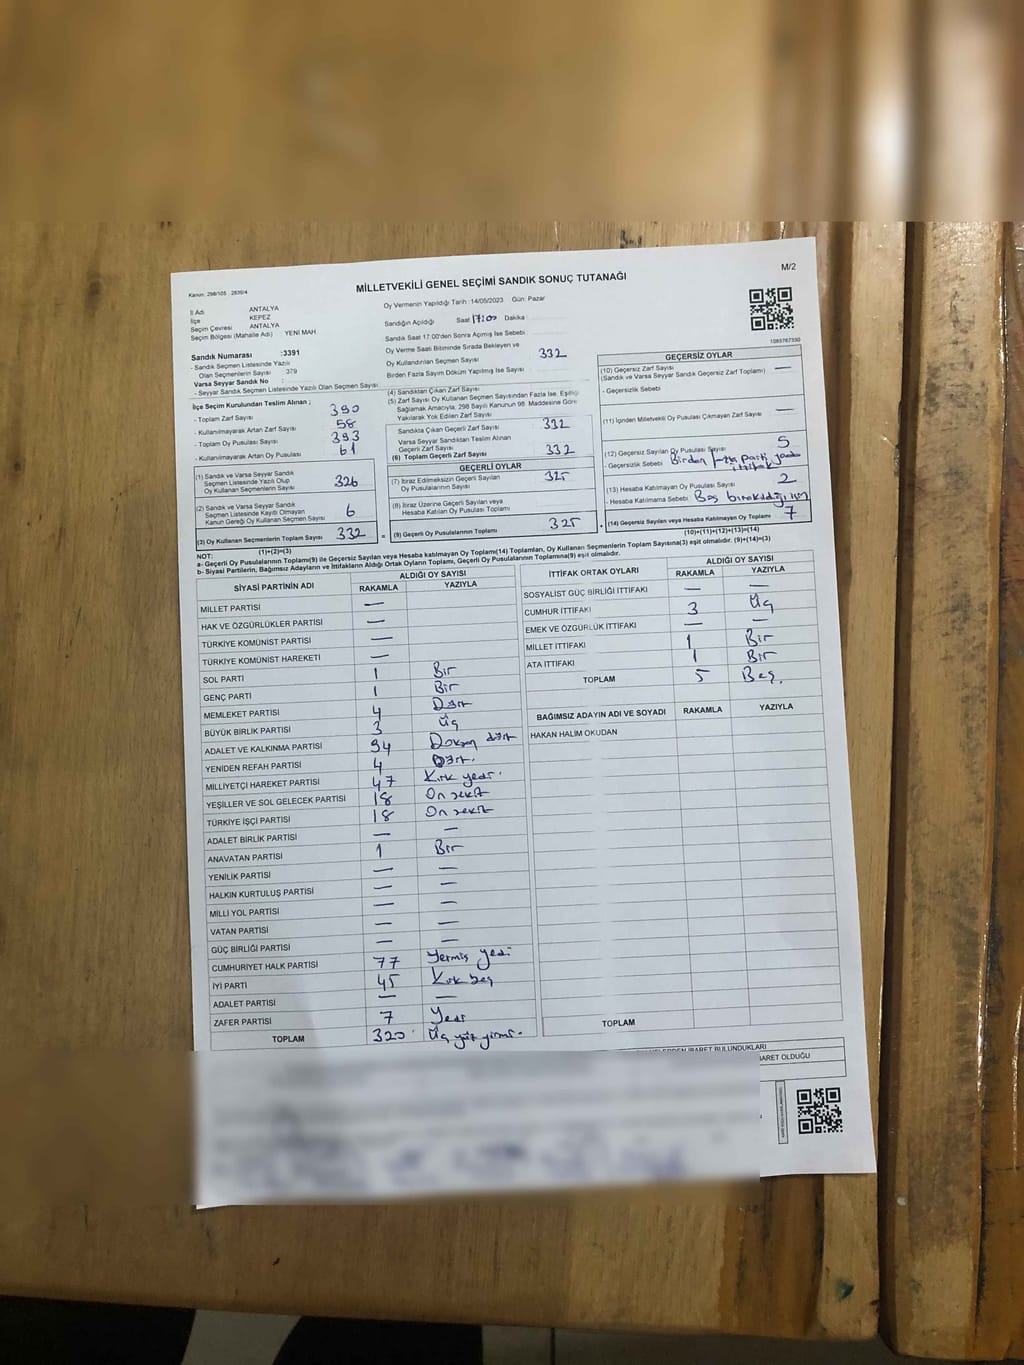 Kanun: 298/105 2839/4
MİLLETVEKİLİ GENEL SEÇİMİ SANDIK SONUÇ TUTANAĞI
M/2
İl Adı ANTALYA
İlçe KEPEZ
Seçim Çevresi ANTALYA
Seçim Bölgesi (Mahalle Adı) YENİ MAH.
Oy Vermenin Yapıldığı Tarih :14/05/2023 Gün: Pazar
Sandığın Açıldığı Saat 17:00 Dakika :
Sandık Saat 17:00'den Sonra Açımış İse Sebebi
Oy Verme Saati Bitiminde Sırada Bekleyen ve
Oy Kullandırılan Seçmen Sayısı 332
Birden Fazla Sayım Döküm Yapılmış İse Sayısı
Sandık Numarası :3391
- Sandık Seçmen Listesinde Yazılı
Olan Seçmenlerin Sayısı : 379
Varsa Seyyar Sandık No :
- Seyyar Sandık Seçmen Listesinde Yazılı Olan Seçmen Sayısı
İlçe Seçim Kurulundan Teslim Alınan ;
- Toplam Zarf Sayısı 390
- Kullanılmayarak Artan Zarf Sayısı 58
- Toplam Oy Pusulası Sayısı 393
- Kullanılmayarak Artan Oy Pusulası 61
(1) Sandık ve Varsa Seyyar Sandık
Seçmen Listesinde Yazılı Olup
Oy Kullanan Seçmenlerin Sayısı 326
(2) Sandık ve Varsa Seyyar Sandık
Seçmen Listesinde Kayıtlı Olmayan
Kanun Gereği Oy Kullanan Seçmen Sayısı 6
(3) Oy Kullanan Seçmenlerin Toplam Sayısı 332
(1)+(2)=(3)
(4) Sandıktan Çıkan Zarf Sayısı
(5) Zarf Sayısı Oy Kullanan Seçmen Sayısından Fazla İse, Eşitliği
Sağlamak Amacıyla, 298 Sayılı Kanunun 98. Maddesine Göre
Yakılarak Yok Edilen Zarf Sayısı
Sandıkta Çıkan Geçerli Zarf Sayısı 332
Varsa Seyyar Sandıktan Teslim Alınan
Geçerli Zarf Sayısı
(6) Toplam Geçerli Zarf Sayısı 332
GEÇERLİ OYLAR
(7) İtiraz Edilmeksizin Geçerli Sayılan
Oy Pusulalarının Sayısı 325
(8) İtiraz Üzerine Geçerli Sayılan veya
Hesaba Katılan Oy Pusulası Toplamı
= (9) Geçerli Oy Pusulalarının Toplamı 325 +
1083767330
GEÇERSİZ OYLAR
(10) Geçersiz Zarf Sayısı
(Sandık ve Varsa Seyyar Sandık Geçersiz Zarf Toplamı) —
- Geçersizlik Sebebi
(11) İçinden Milletvekili Oy Pusulası Çıkmayan Zarf Sayısı —
(12) Geçersiz Sayılan Oy Pusulası Sayısı 5
- Geçersizlik Sebebi Birden fazla parti
ittifak
(13) Hesaba Katılmayan Oy Pusulası Sayısı 2
- Hesaba Katılmama Sebebi Boş bırakıldığı için
(14) Geçersiz Sayılan veya Hesaba Katılmayan Oy Toplamı 7
(10)+(11)+(12)+(13)=(14)
NOT:
a- Geçerli Oy Pusulasının Toplamı(9) ile Geçersiz Sayılan veya Hesaba katılmayan Oy Toplamı(14) Toplamları, Oy Kullanan Seçmenlerin Toplam Sayısına(3) eşit olmalıdır. (9)+(14)=(3)
b- Siyasi Partilerin, Bağımsız Adayların ve İttifakların Aldığı Ortak Oyların Toplamı, Geçerli Oy Pusulalarının Toplamına(9) eşit olmalıdır.
SİYASİ PARTİNİN ADI ALDIĞI OY SAYISI
RAKAMLA YAZIYLA
MİLLET PARTİSİ —
HAK VE ÖZGÜRLÜKLER PARTİSİ —
TÜRKİYE KOMÜNİST PARTİSİ —
TÜRKİYE KOMÜNİST HAREKETİ —
SOL PARTİ 1 Bir
GENÇ PARTİ 1 Bir
MEMLEKET PARTİSİ 4 Dört
BÜYÜK BİRLİK PARTİSİ 3 Üç
ADALET VE KALKINMA PARTİSİ 94 Doksan dört
YENİDEN REFAH PARTİSİ 4 Dört.
MİLLİYETÇİ HAREKET PARTİSİ 47 Kırk yedi.
YEŞİLLER VE SOL GELECEK PARTİSİ 18 On sekiz
TÜRKİYE İŞÇİ PARTİSİ 18 On sekiz
ADALET BİRLİK PARTİSİ — —
ANAVATAN PARTİSİ 1 Bir
YENİLİK PARTİSİ — —
HALKIN KURTULUŞ PARTİSİ — —
MİLLİ YOL PARTİSİ — —
VATAN PARTİSİ — —
GÜÇ BİRLİĞİ PARTİSİ — —
CUMHURİYET HALK PARTİSİ 77 Yetmiş yedi
İYİ PARTİ 45 Kırk beş
ADALET PARTİSİ — —
ZAFER PARTİSİ 7 Yedi
TOPLAM 320 Üç yüz yirmi.
İTTİFAK ORTAK OYLARI ALDIĞI OY SAYISI
RAKAMLA YAZIYLA
SOSYALİST GÜÇ BİRLİĞİ İTTİFAKI — —
CUMHUR İTTİFAKI 3 Üç
EMEK VE ÖZGÜRLÜK İTTİFAKI — —
MİLLET İTTİFAKI 1 Bir
ATA İTTİFAKI 1 Bir
TOPLAM 5 Beş.
BAĞIMSIZ ADAYIN ADI VE SOYADI RAKAMLA YAZIYLA
HAKAN HALİM OKUDAN
TOPLAM
İBARET BULUNDUKLARI
BARET OLDUĞU